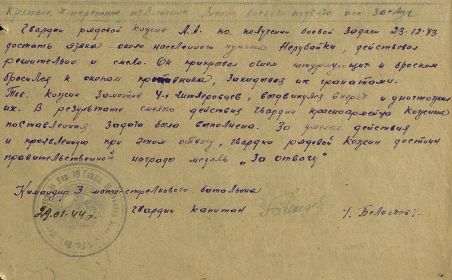 Краткое, конкретное изложение личного боевого подвига или заслуг
Гвардии рядовой Кожин А.А. на получении боевой задачи 23-12-43
достать языка около населенного пункта Нерубайки, действовал
решительно и смело. Он прикрывал огнем штурму-щит и броском
бросился к окопам противника, закидывая их гранатами.
Тов. Кожин заметив 4-х гитлеровцев, выдвинулся вперед и уничтожил
их. В результате смелого действия гвардии красноармейца Кожина
поставленная задача была выполнена. За умелые действия
и проявленную при этом отвагу, гвардии рядовой Кожин достоин
правительственной награды медаль „За отвагу"
Командир 3 мото-стрелкового батальона
29.01.44 г. гвардии капитан